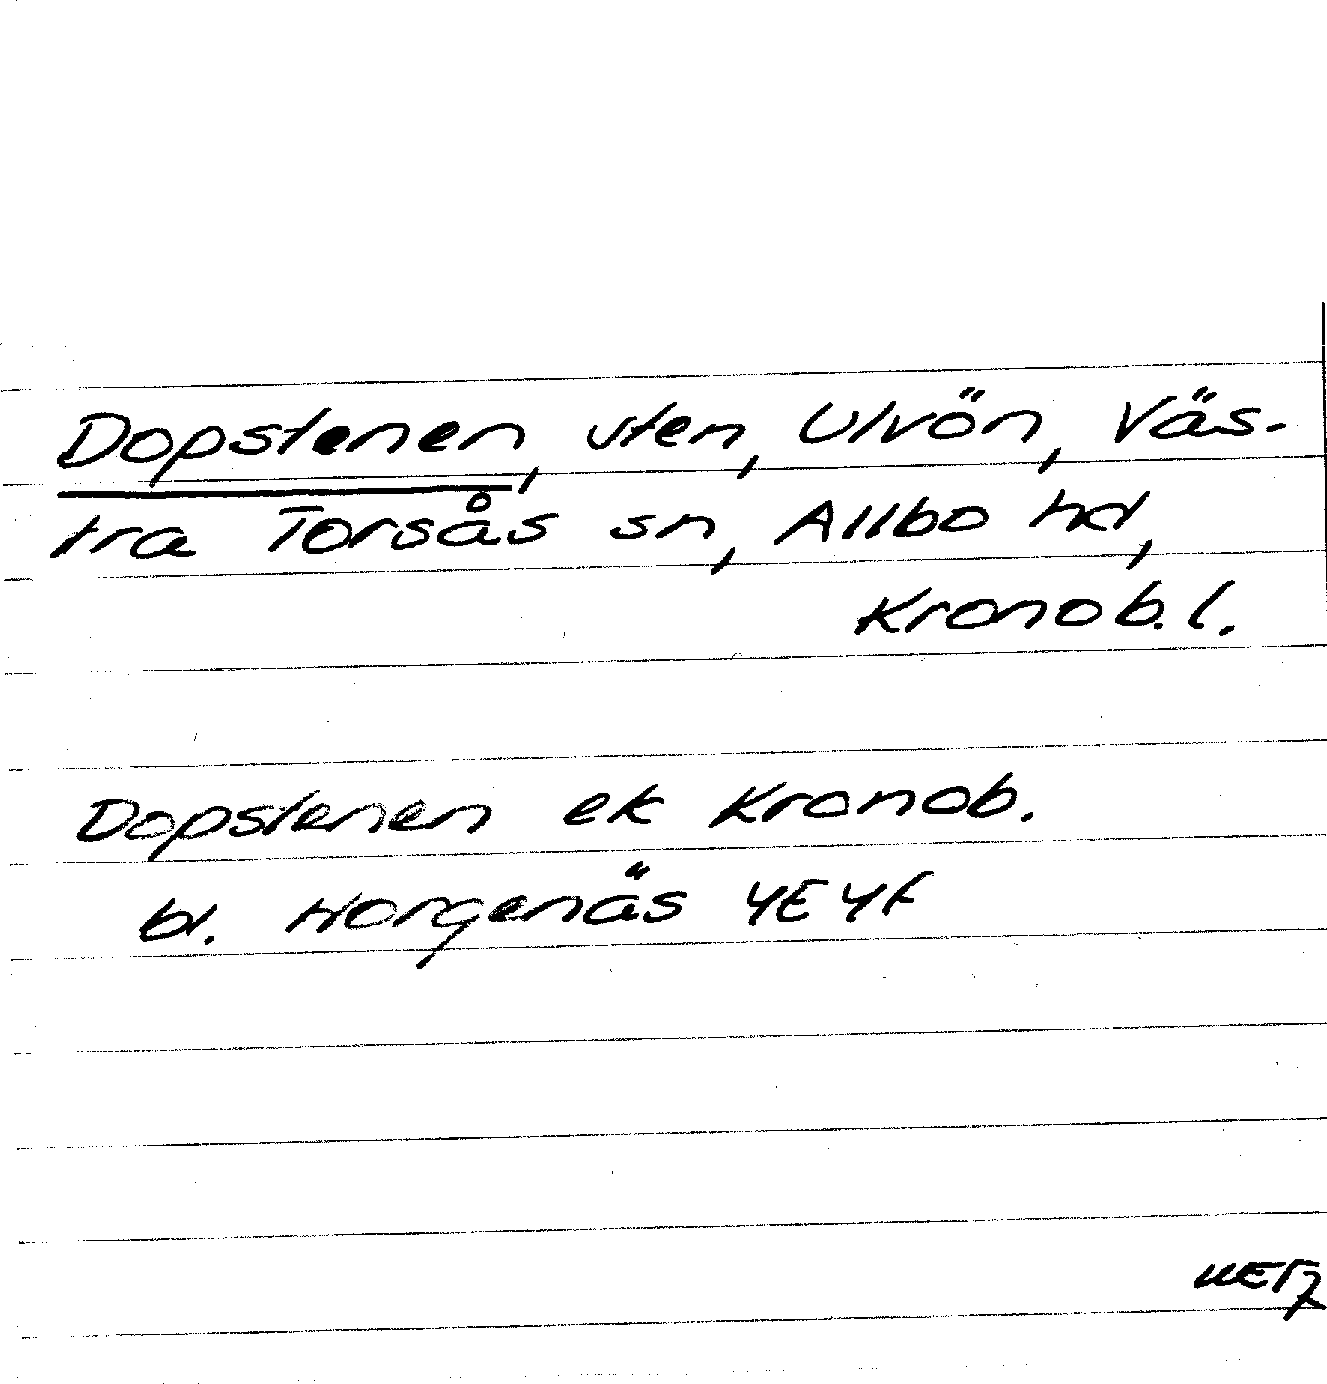 Dopstenen, sten, Ulvön, Väs-
tra Torsås sn, Allbo hd,
Kronob. l.
Dopstenen ek Kronob.
bl. Horgenäs 4E4f